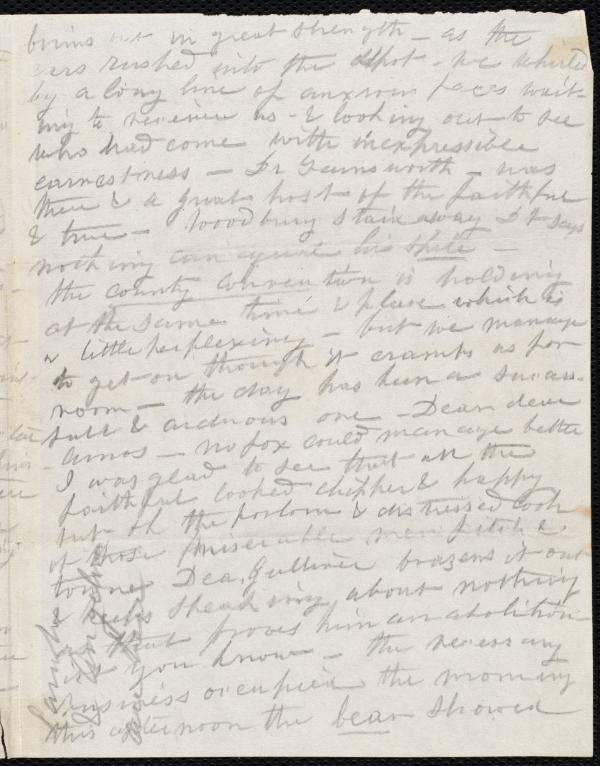 turns out in great strength - as the
cars rushed into the depot - we whirled
by a long line of anxious faces wait-
ing to receive us - & looking out to see
who had come with inexpressible
earnestness - Dr Farnsworth - was
there & a great host of the faithful
& true - Woodbury stays away D t says
nothing can equal his spite -
the county convention is holding
at the same time & place which is
a little perplexing - but we manage
to get on though it cramps us for
room - the day has been a success-
full & arduous one - Dear dear
Amos - no fox could manage better
I was glad to see that all the
faithful looked chipper & happy
but oh the forlorn & distressed look
of those miserable men Fitch &
Towne Dea. Gulliver brazens it out
& keeps speaking about nothing
as that proves him an abolition-
ist you know - the necessary
business occupied the morning
this afternoon the bear showed